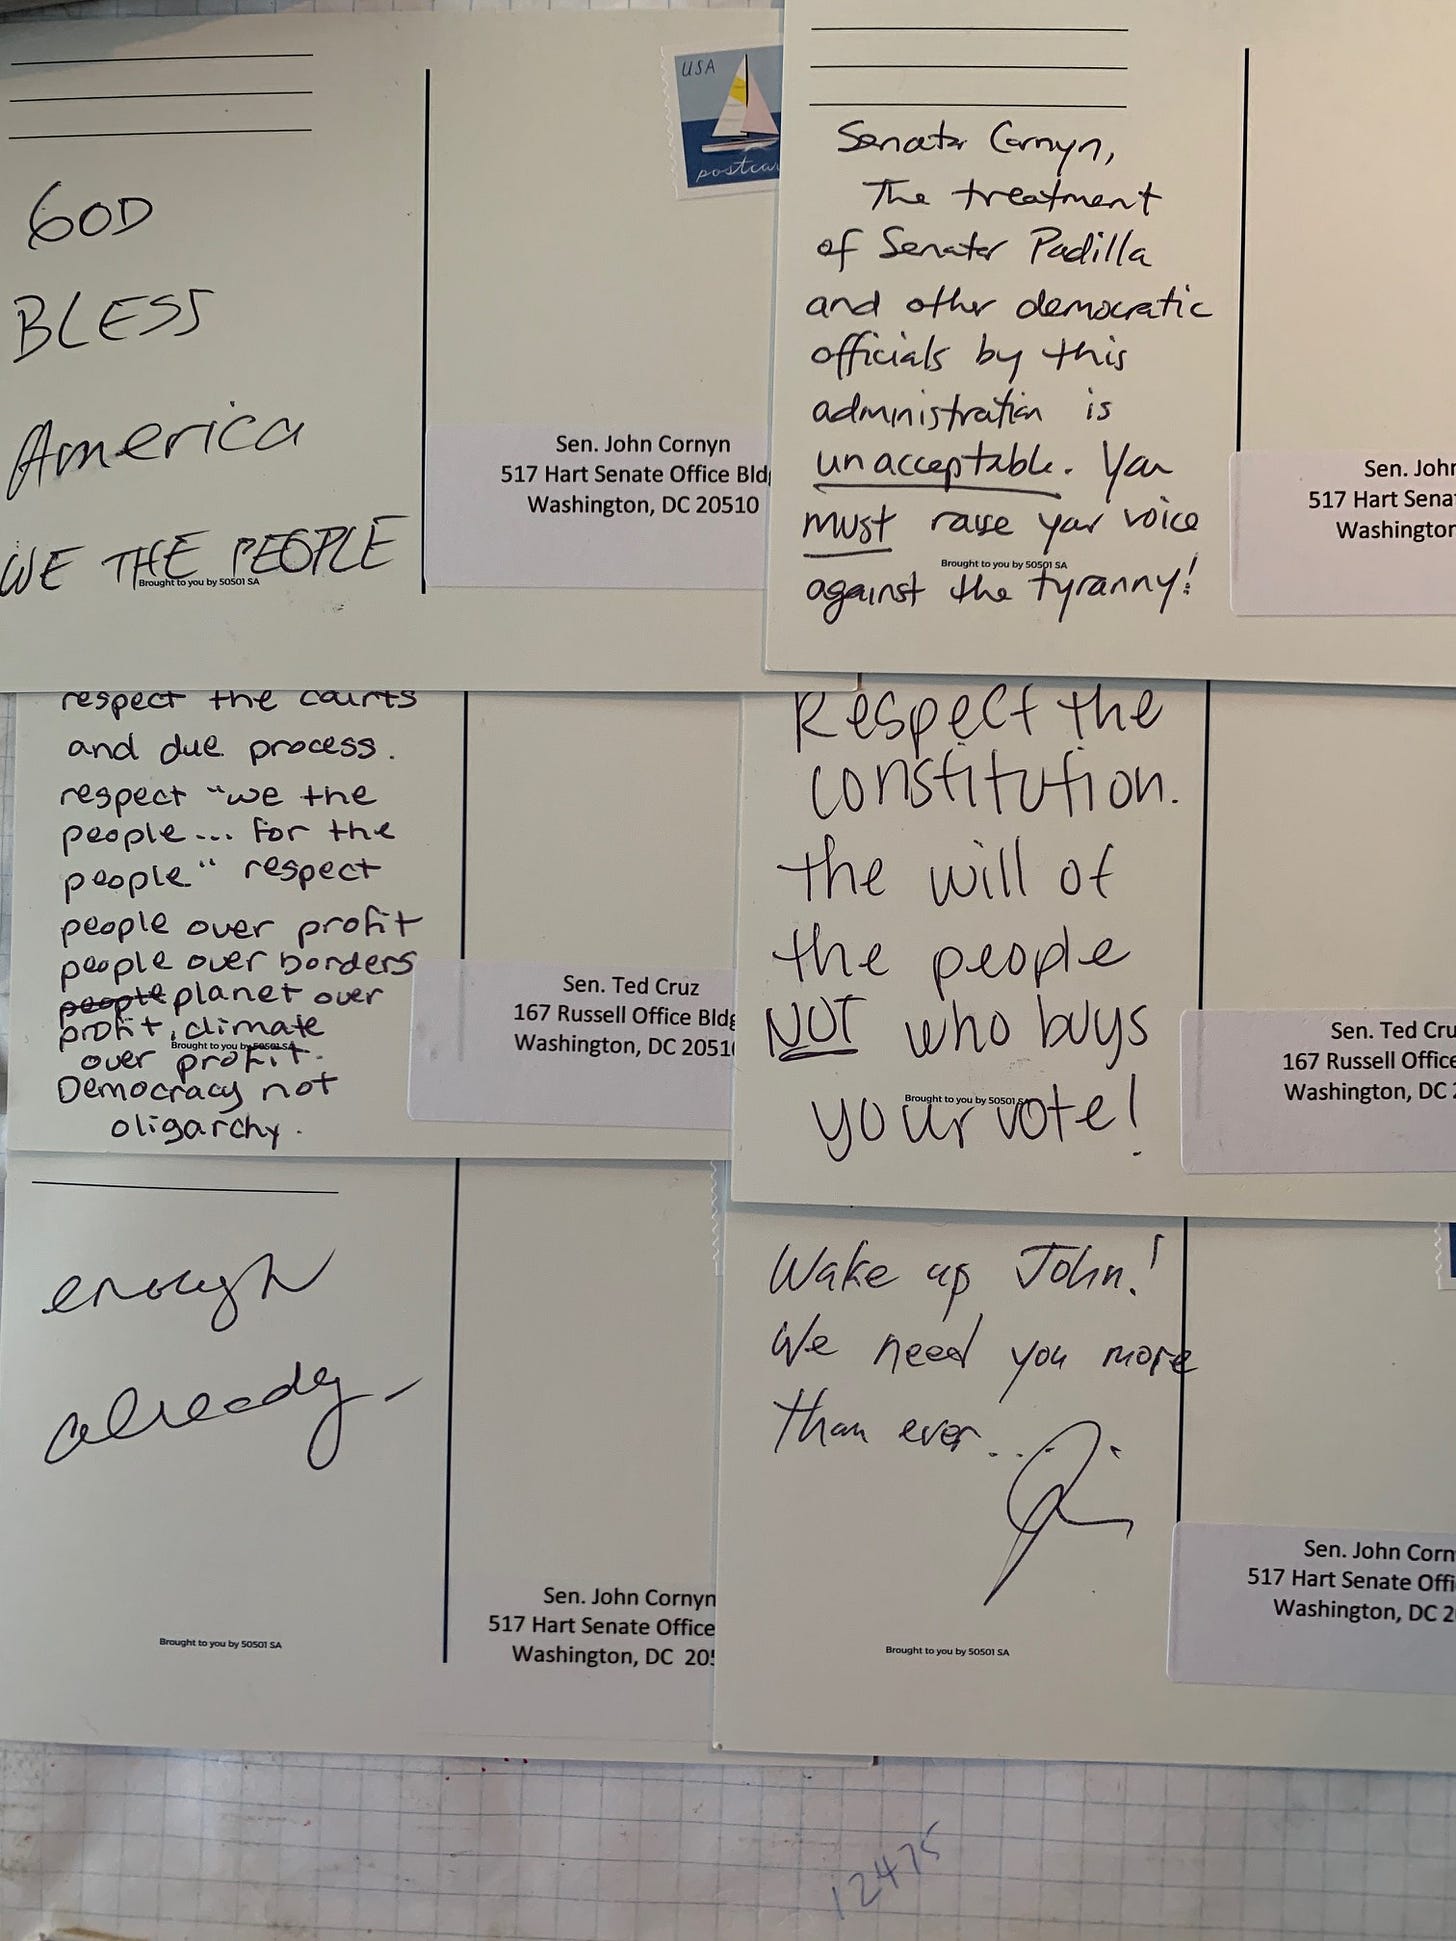 USA
postcar
GOD
BLESS
America
WE THE PEOPLE
Brought to you by 50501 SA
Sen. John Cornyn
517 Hart Senate Office Bldg
Washington, DC 20510
Senator Cornyn,
The treatment
of Senator Padilla
and other democratic
officials by this
administration is
unacceptable. You
must raise your voice
against the tyranny!
Brought to you by 50501 SA
Sen. John
517 Hart Sena
Washington
respect the courts
and due process.
respect "we the
people... for the
people" respect
people over profit
people over borders
people planet over
profit, climate
over profit.
Democracy not
oligarchy.
Brought to you by 50501 SA
Sen. Ted Cruz
167 Russell Office Bldg
Washington, DC 20510
Respect the
constitution.
the will of
the people
NOT who buys
your vote!
Brought to you by 50501 SA
Sen. Ted Cru
167 Russell Office
Washington, DC 2
enough
already
Brought to you by 50501 SA
Sen. John Cornyn
517 Hart Senate Office
Washington, DC 205
Wake up John!
We need you more
than ever...
Brought to you by 50501 SA
Sen. John Corn
517 Hart Senate Offi
Washington, DC 2
12475